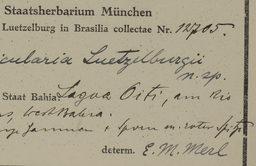 Staatsherbarium München
Luetzelburg in Brasilia collectae Nr. 12705.
cularia Luetzelburgii
n. sp.
Staat Bahia: Lagoa Oiti, am Rio
West Bahia.
+ Sporn m. roter Spitze
determ. E. M. Merl